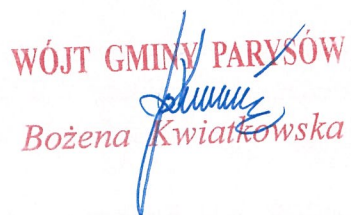 WÓJT GMINY PARYSÓW
Bożena Kwiatkowska